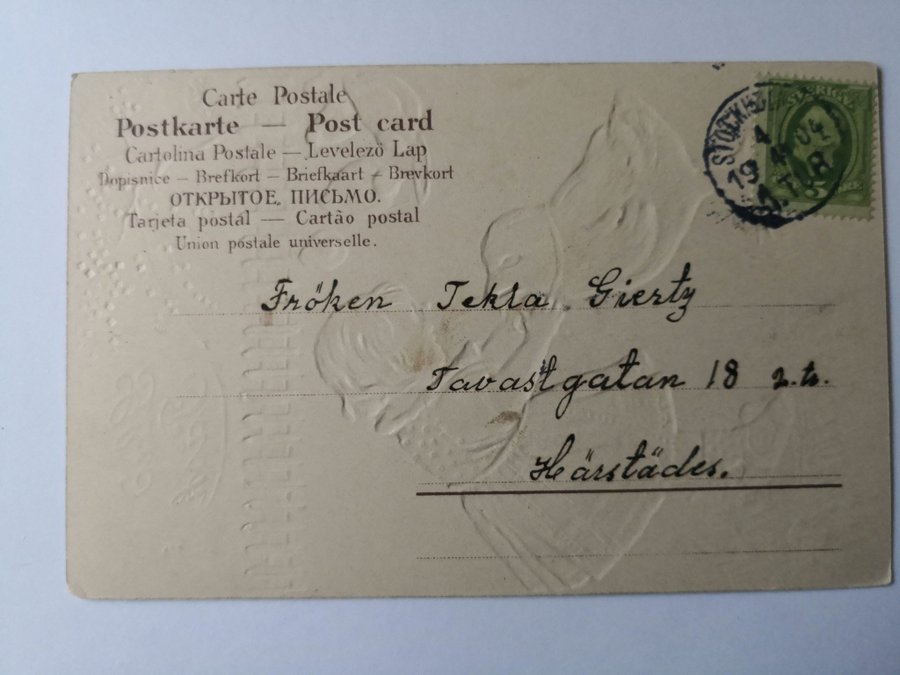 Carte Postale
Postkarte — Post card
Cartolina Postale — Levelező Lap
Dopisnice — Brefkort — Briefkaart — Brevkort
ОТКРЫТОЕ ПИСЬМО.
Tarjeta postal — Cartão postal
Union postale universelle.
SVERIGE
STOCKHOLM
Fröken Tekla Giertz
Tavastgatan 18 2.tr.
Härstädes.